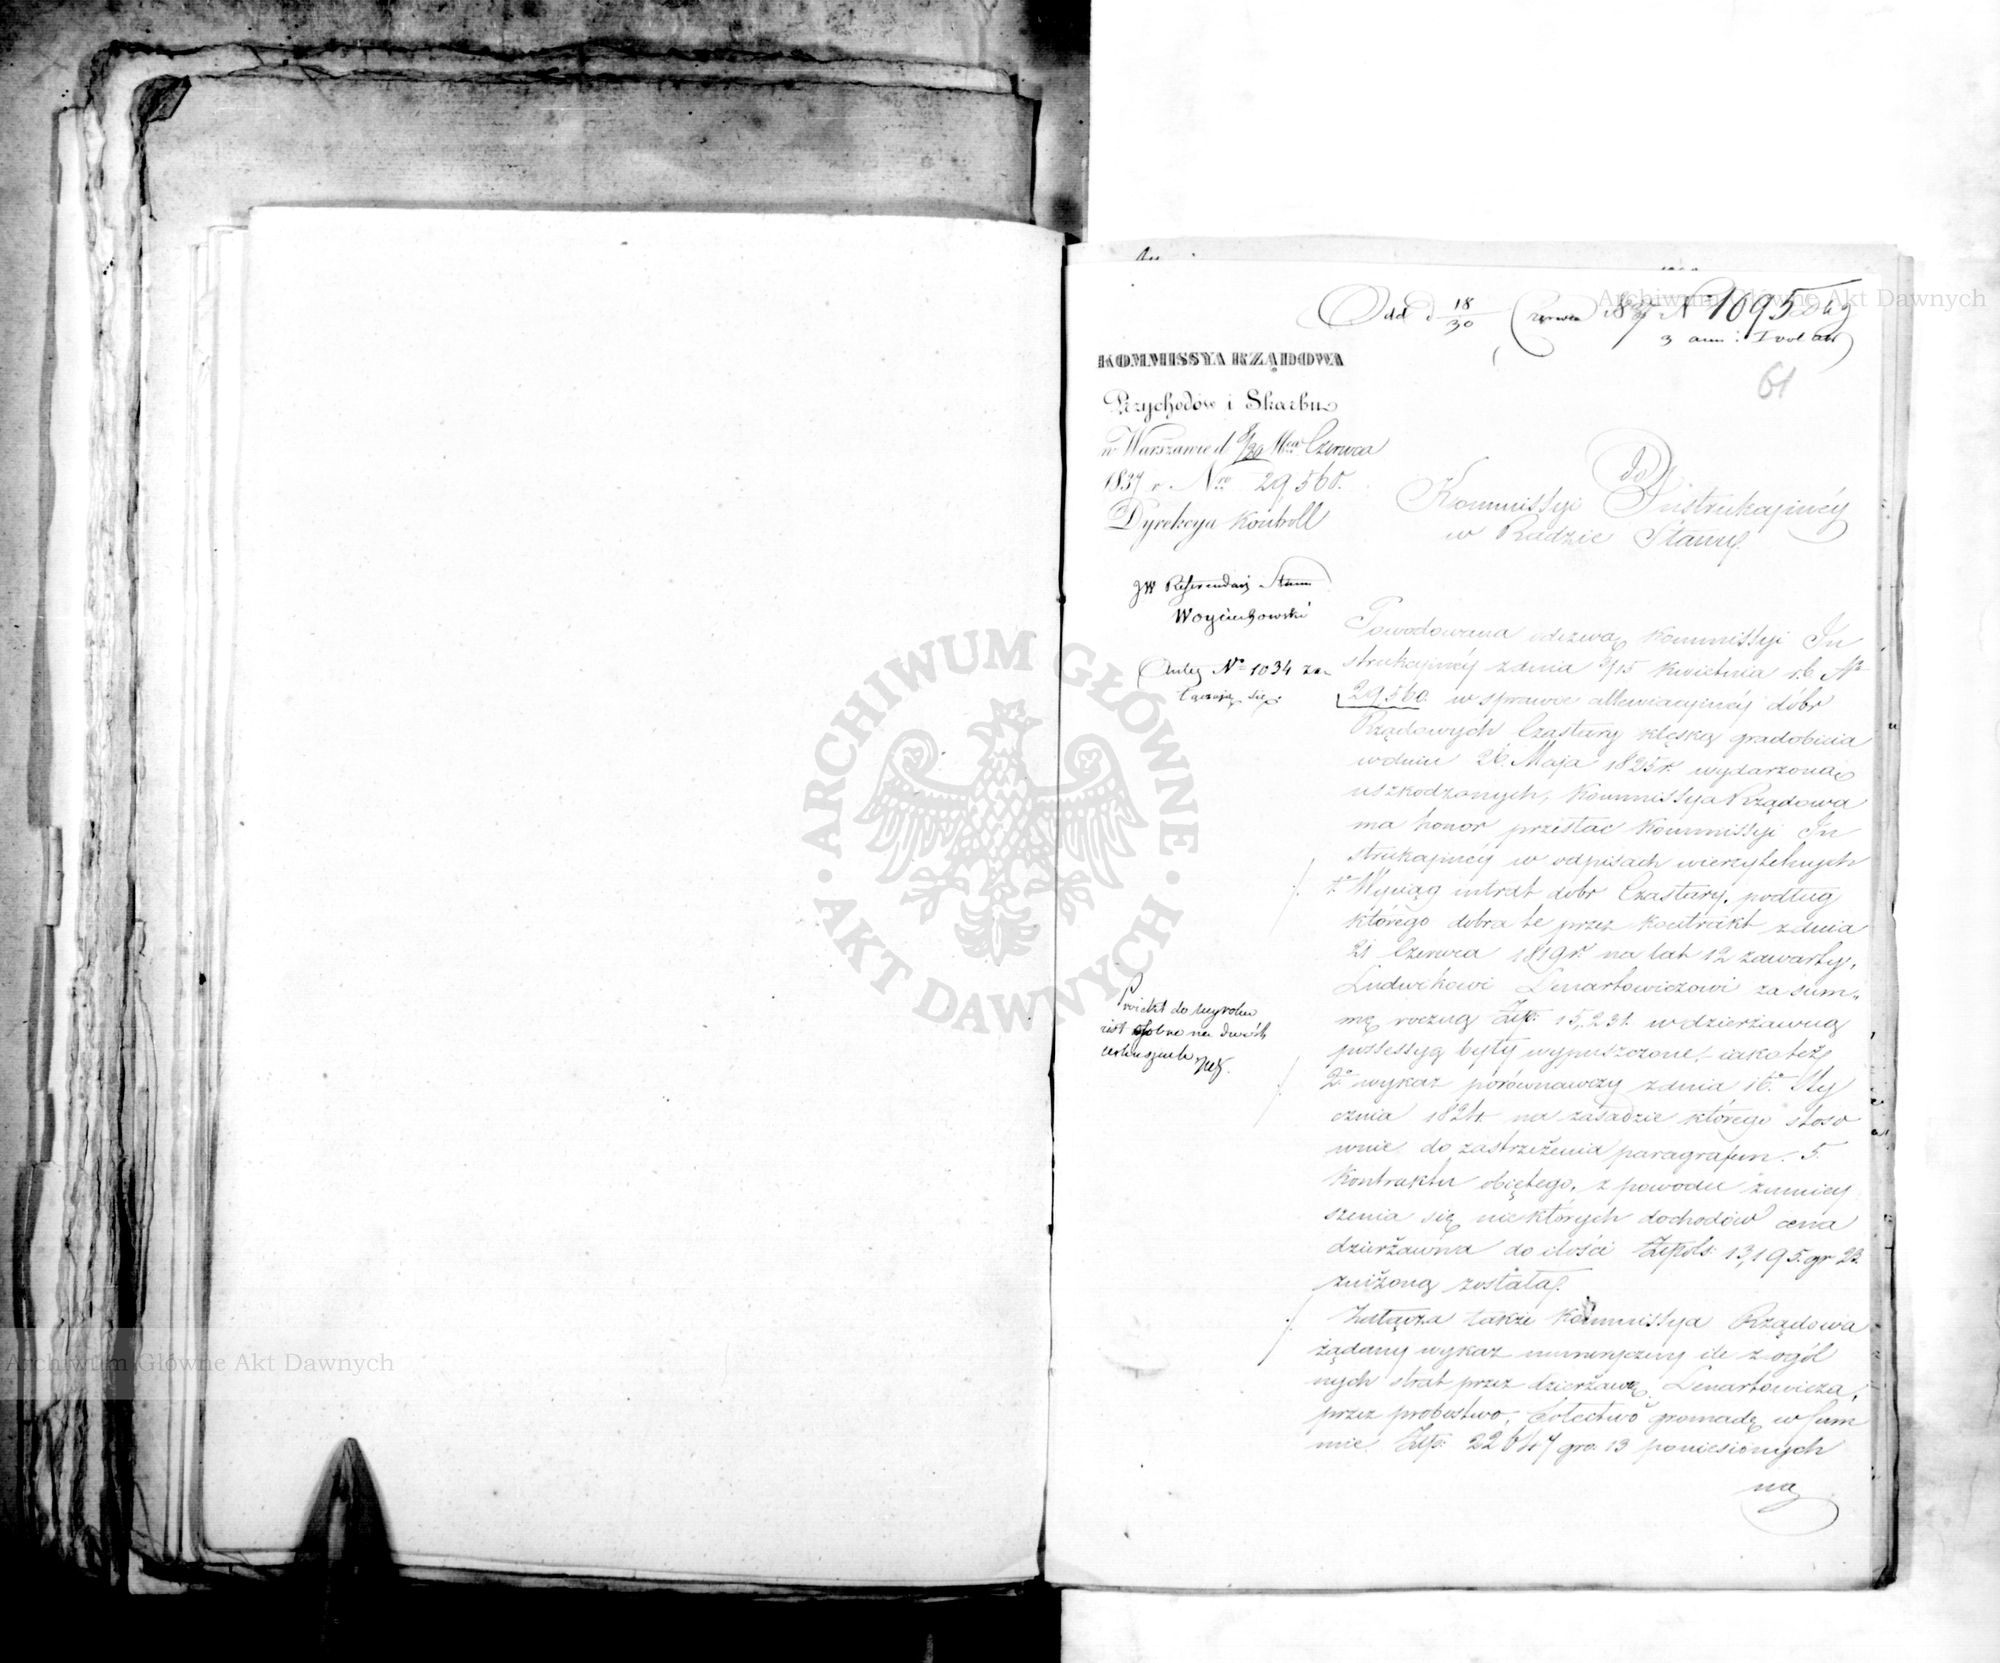 Odd d 18/30 Czerwca 1837 N 1095
3 ann: I vol akt
61
KOMMISSYA RZĄDOWA
Przychodów i Skarbu
w Warszawie d 8/20 Mca Czerwca
1837 r. Nro 29560.
Dyrekcya Kontroll
do
Kommissyi Instrukcyinéy
w Radzie Stanu.
JW Referendarz Stanu
Woyciechowski
Antec No 1034 za-
łączają się.
Powodowana odezwą Kommissyi In
strukcyinéy z dnia 3/15 Kwietnia r.b. No
29560. w sprawie allewiacyinéy dóbr
Rządowych Czastary klęską gradobicia
w dniu 26. Maja 1825 r. wydarzoną
uszkodzonych, Kommissya Rządowa
ma honor przesłać Kommissyi In
strukcyinéy w odpisach wierzytelnych
1o Wyciąg intrat dóbr Czastary, podług
którego dobra te przez kontrakt z dnia
21 Czerwca 1819 r. na lat 12 zawarty,
Ludwikowi Lenartowiczowi za sum-
mę roczną Złp. 15,231. w dzierżawną
possessyą były wypuszczone, iako też
2o wykaz porównawczy z dnia 16o Sty
cznia 1824. na zasadzie którego stoso
wnie do zastrzeżenia paragrafem 5.
Kontraktu obiętego, z powodu zmniey
szenia się niektórych dochodów cena
dzierżawna do ilości Złpols: 13,195. gr 23.
zniżoną została.
Proiekt do wyroku
iest osobno na dwóch
arkuszach
Załącza także Kommissya Rządowa
żądany wykaz numeryczny ile z ogól
nych strat przez dzierżawcę Lenartowicza,
przez probostwo, Sołectwo gromadę w Sum
mie Złp. 22647 gro. 13 poniesionych
na
Archiwum Główne Akt Dawnych
ARCHIWUM GŁÓWNE AKT DAWNYCH
Archiwum Główne Akt Dawnych